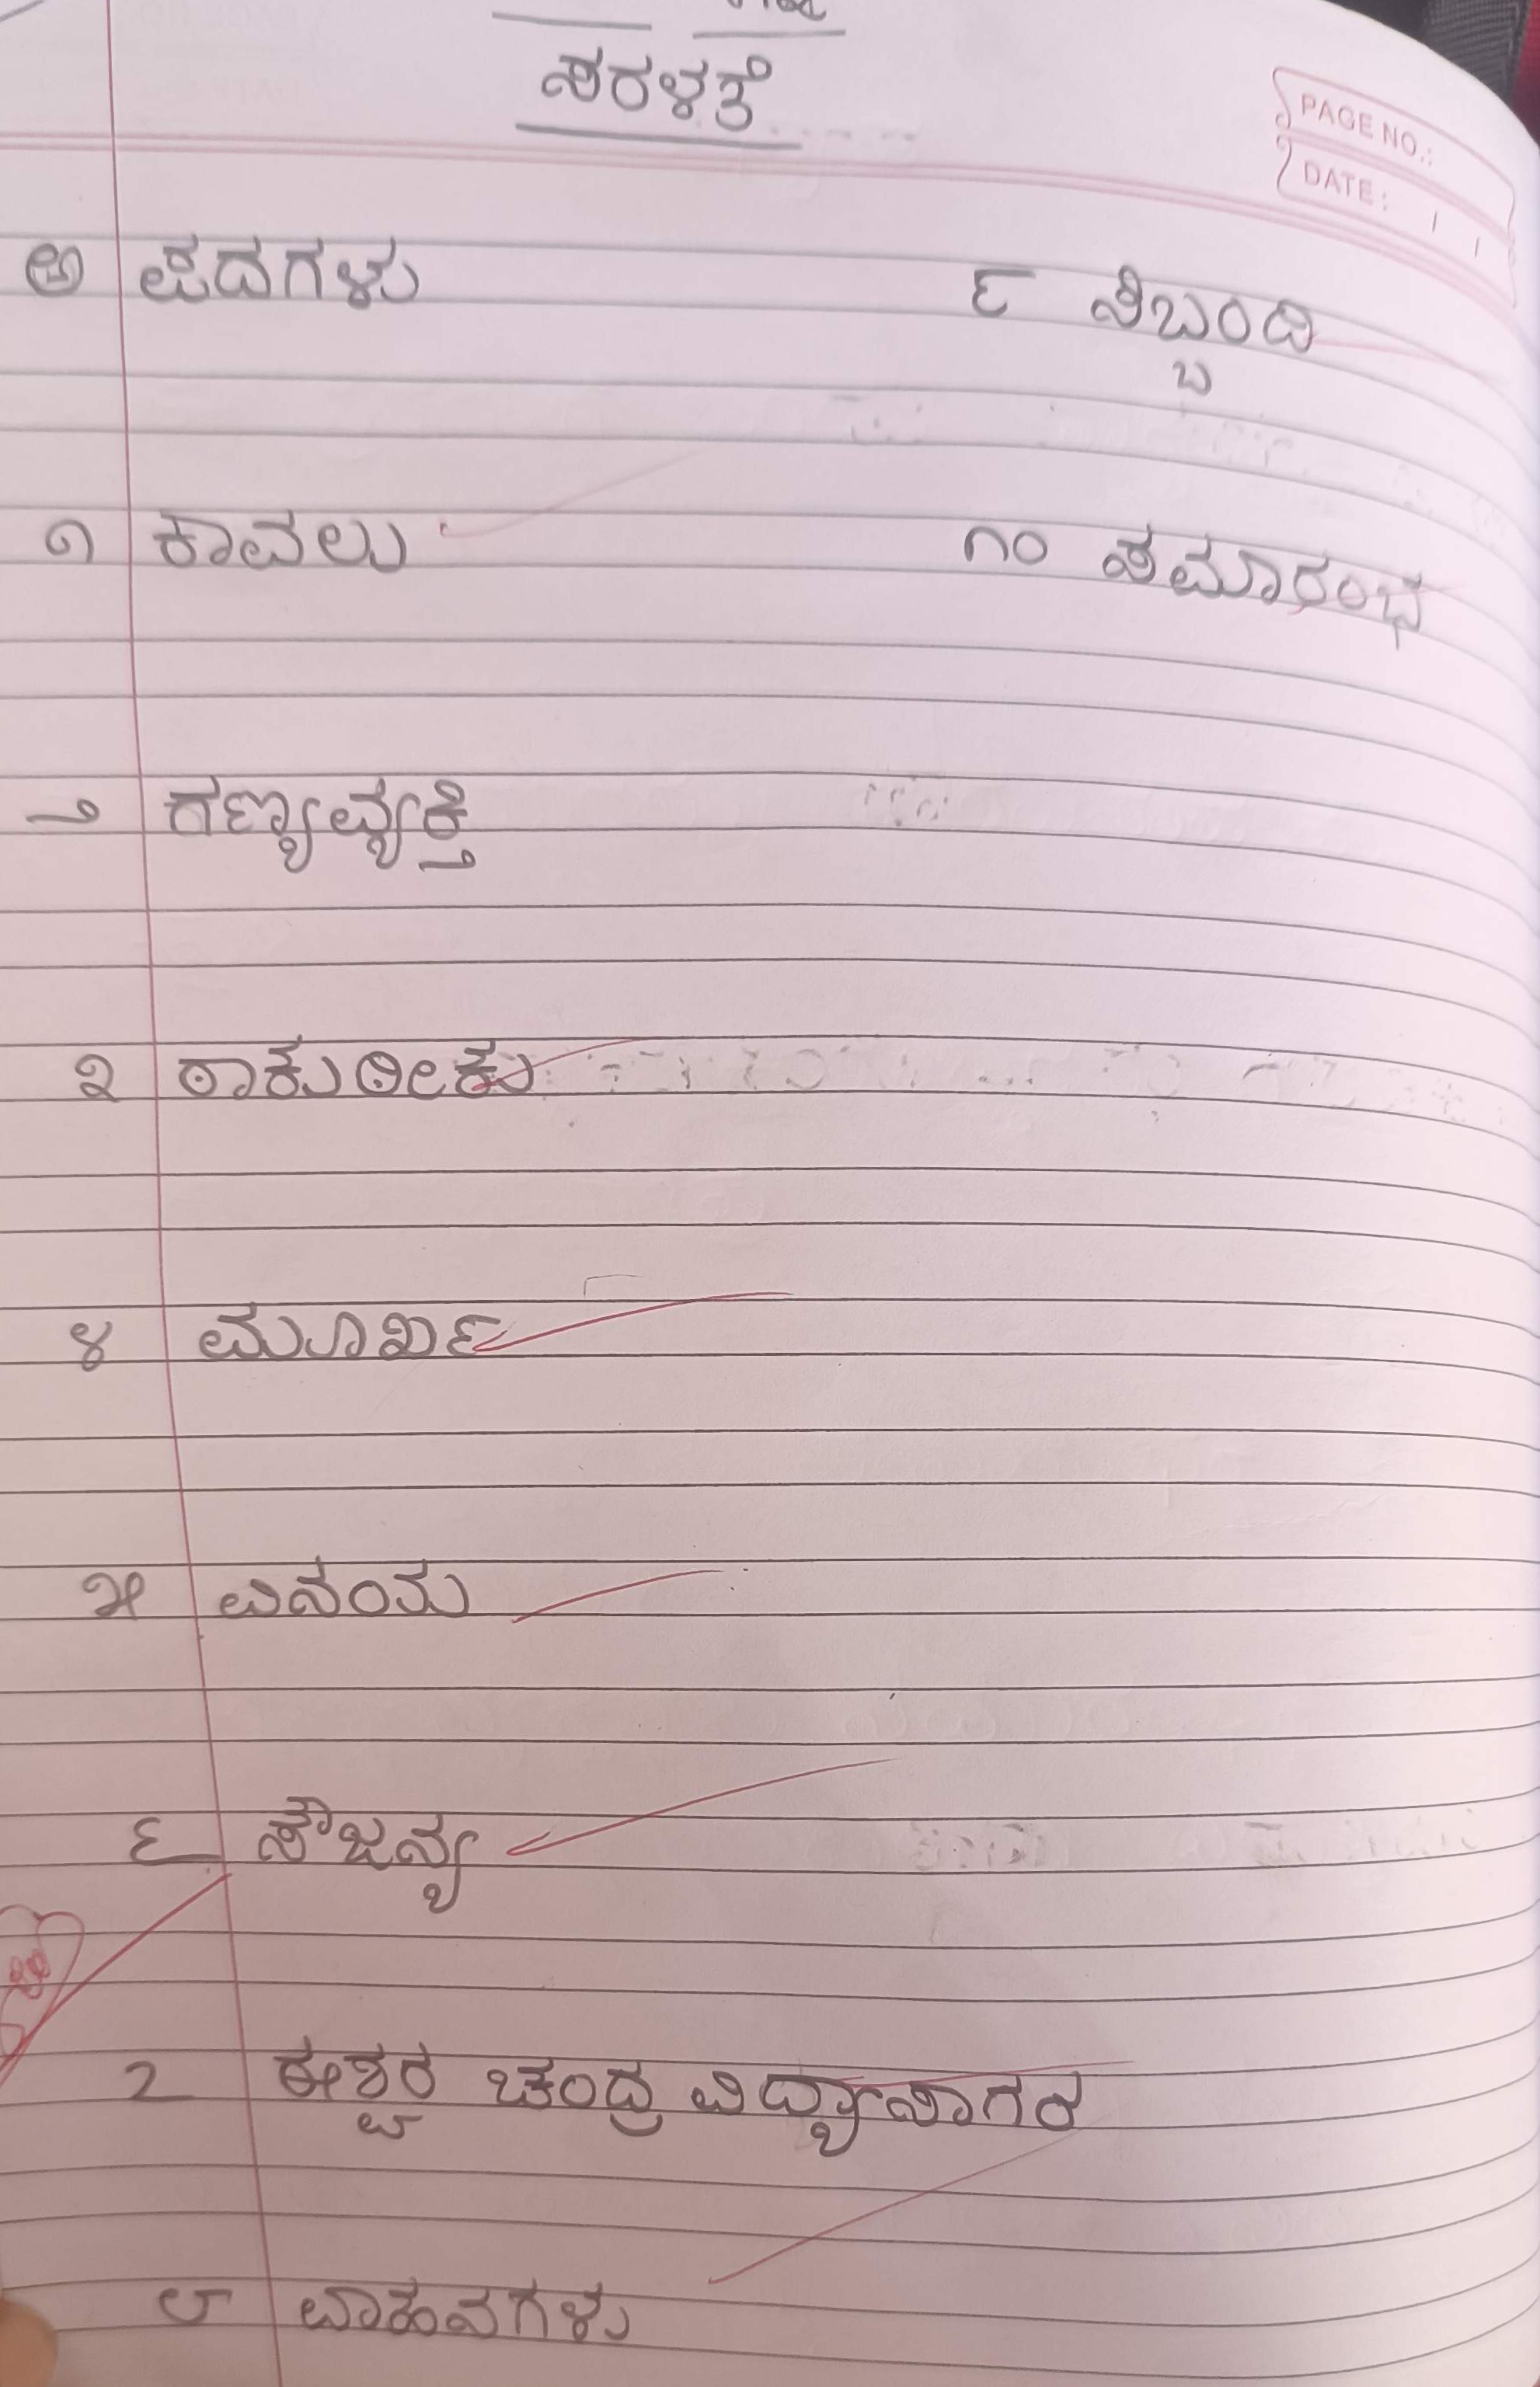 ಸರಳತೆ
PAGE NO.:
DATE: / /
ಅ ಪದಗಳು
೯ ಸಿಬ್ಬಂದಿ
೧ ಕಾವಲು
೧೦ ಸಮಾರಂಭ
೨ ಗಣ್ಯವ್ಯಕ್ತಿ
೩ ಠಾಕುಠೀಕು
೪ ಮೂರ್ಖ
೫ ವಿನಂಮ
೬ ಸೌಜನ್ಯ
೭ ಈಶ್ವರ ಚಂದ್ರ ವಿದ್ಯಾಸಾಗರ
೮ ವಾಹನಗಳು